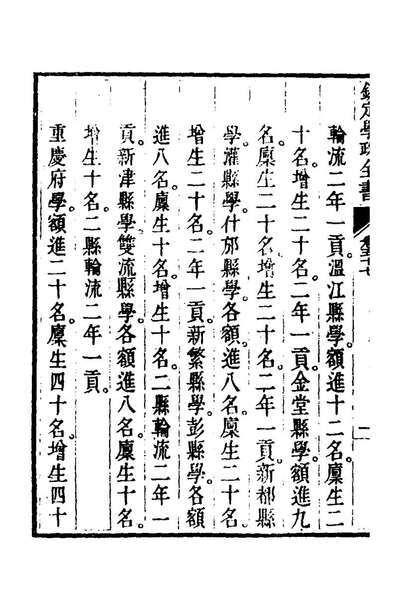 欽定學政全書
輪流二年一貢。溫江縣學。額進十二名。廩生二
十名。增生二十名。二年一貢。金堂縣學。額進九
名。廩生二十名。增生二十名。二年一貢。新都縣
學。灌縣學。什邡縣學。各額進八名。廩生二十名。
增生二十名。二年一貢。新繁縣學。彭縣學。各額
進八名。廩生十名。增生十名。二縣輪流二年一
貢。新津縣學。雙流縣學。各額進八名。廩生十名。
增生十名。二縣輪流二年一貢。
重慶府學。額進二十名。廩生四十名。增生四十